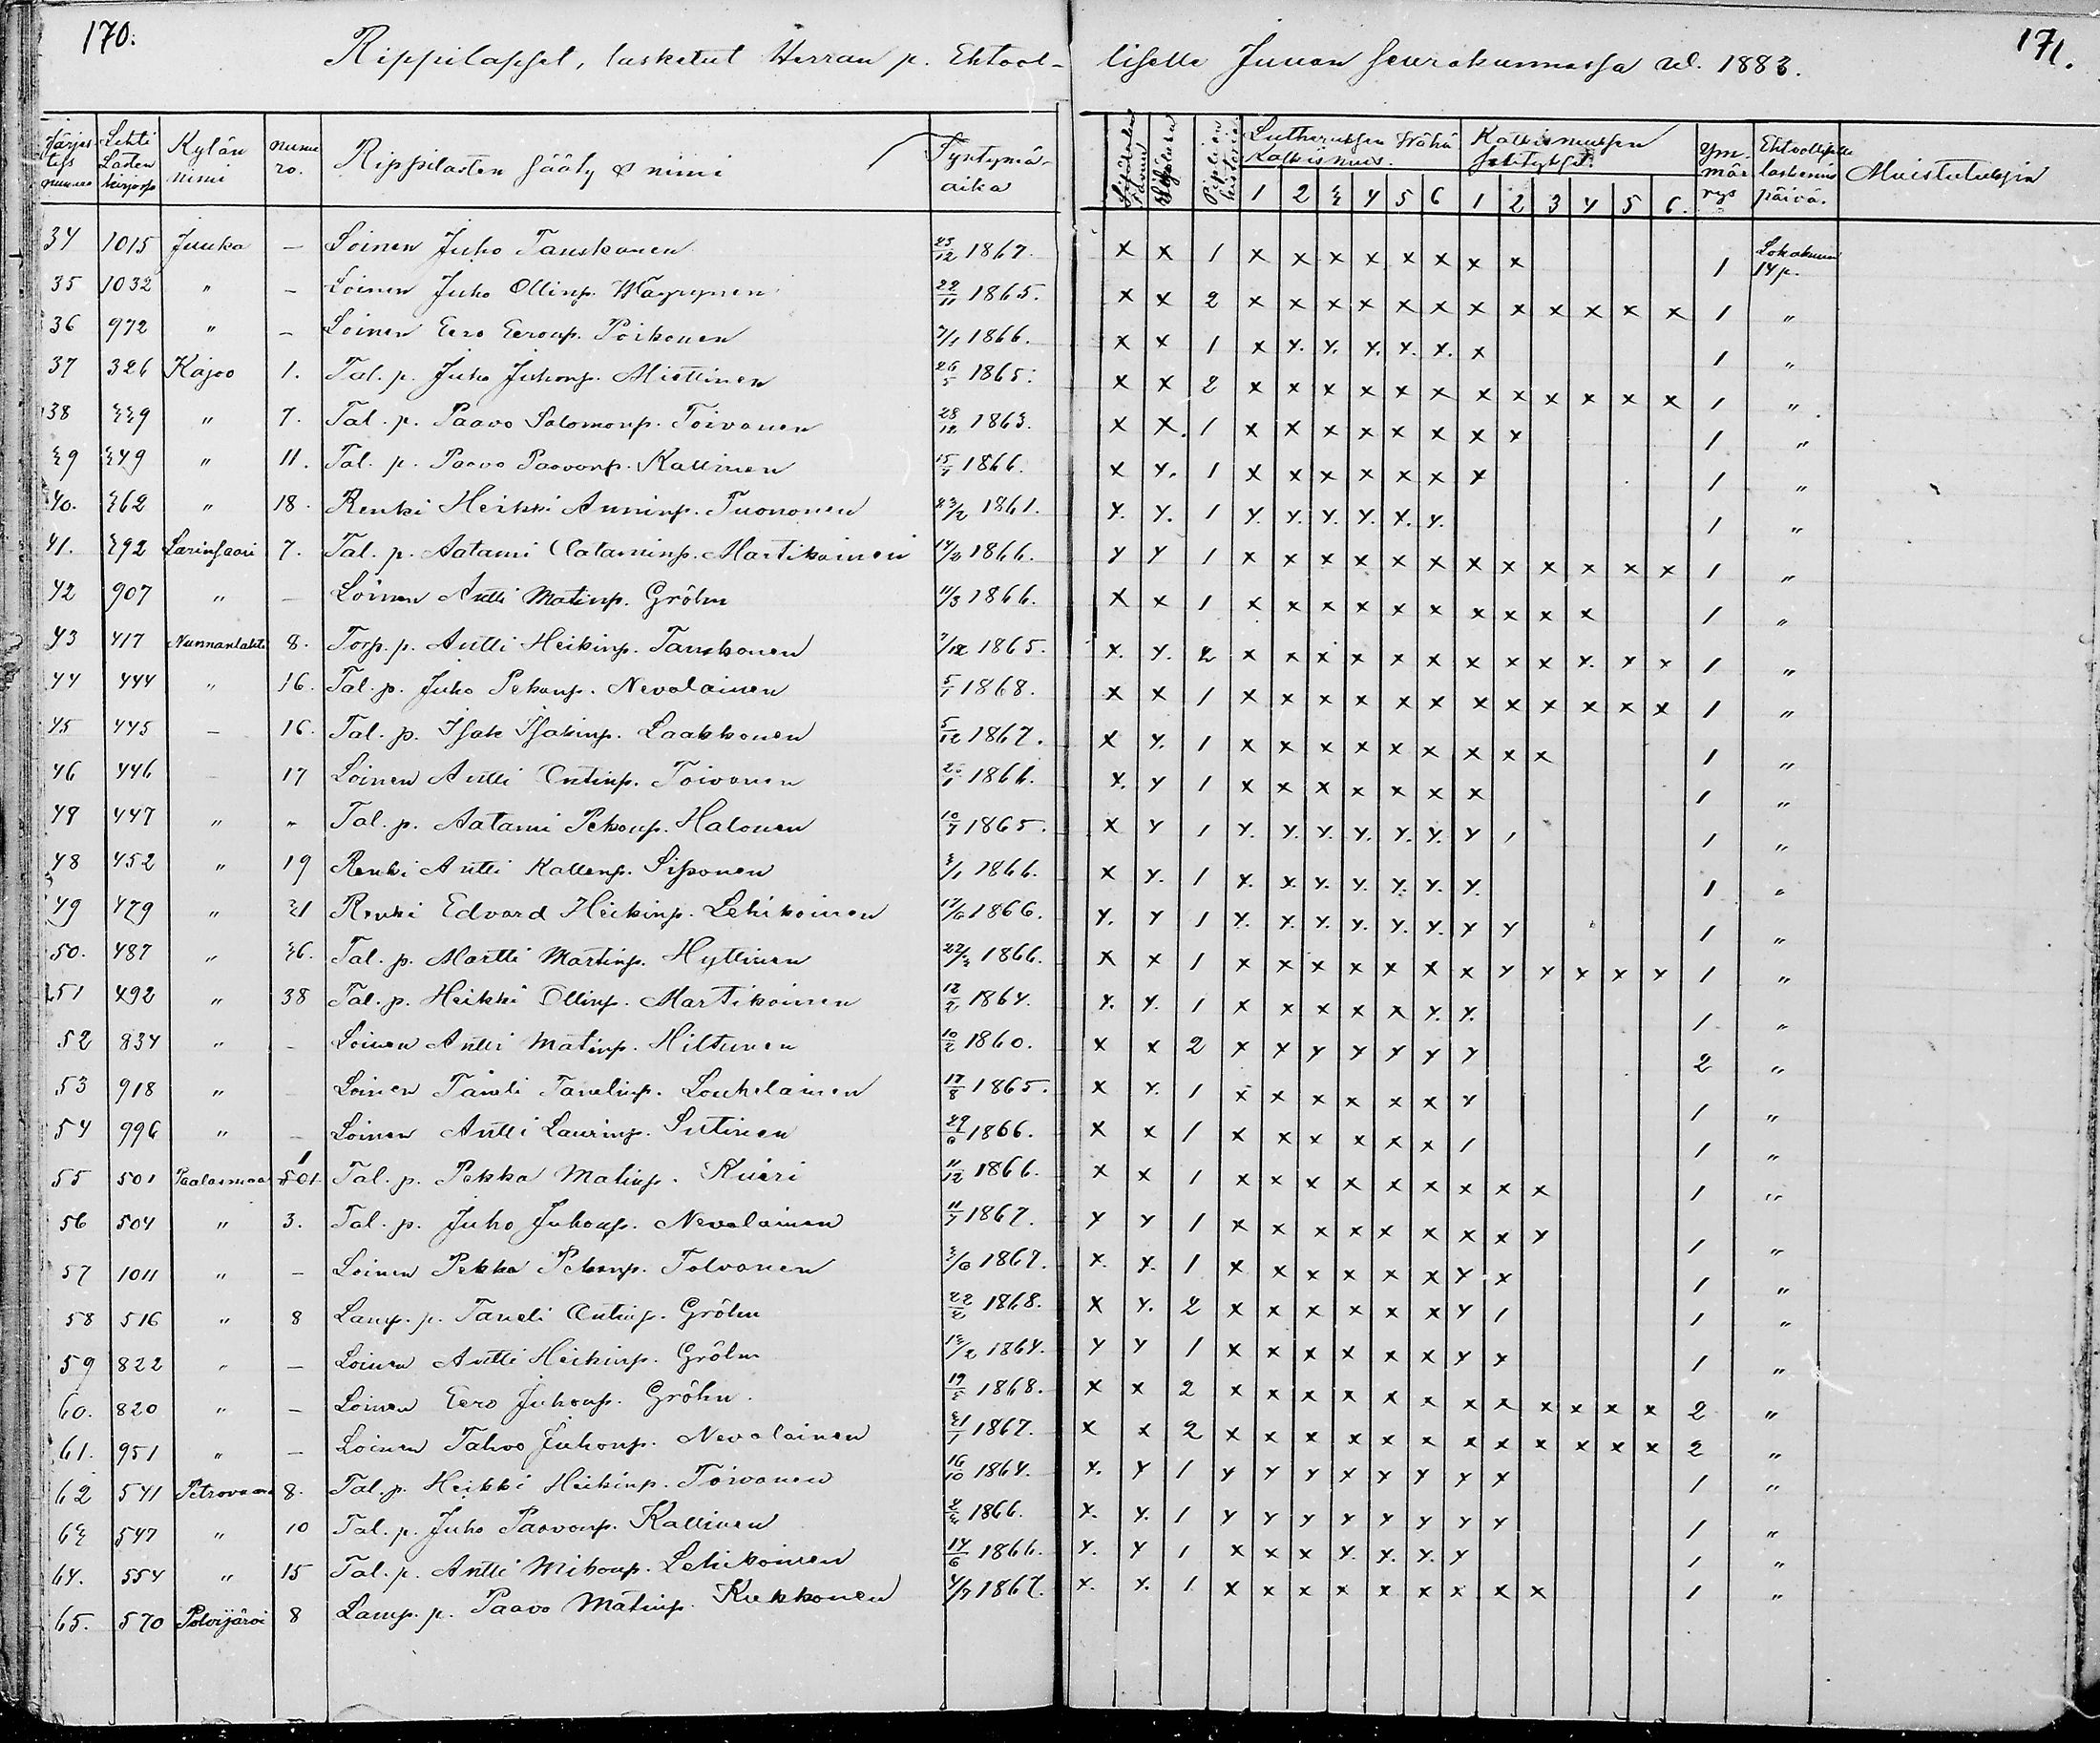 170.
Rippilapset, lasketut Herran p. Ehtool- liselle Juuan seurakunnassa v. 1883.
171.
Järjestys numero | Lehti Lasten kirjassa | Kylän nimi | numero. | Rippilasten sääty & nimi | Syntymä-aika | Sisäluku | Piplian historia | Lutheruksen Wähä Katkismus. 1 2 3 4 5 6 | Katkismuksen selitykset. 1 2 3 4 5 6. | Ymmärrys | Ehtoolliselle laskemis päivä. | Muistutuksia
34 1015 Juuka — Loinen Juho Tanskanen 25/12 1867. x x 1 x x x x x x x x 1 Lokakuun 14 p.
35 1032 " — Loinen Juho Ollinp. 22/11 1865. x x 2 x x x x x x x x x x x x 1 "
36 972 " — Loinen Eero Eeronp. Poikonen 7/1 1866. x x 1 x x x x x x x 1 "
37 326 Kajoo 1. Tal. p. Juho Juhonp. Miettinen 26/5 1865. x x 2 x x x x x x x x x x x x 1 "
38 339 " 7. Tal. p. Paavo Salomonp. Toivanen 28/12 1863. x x 1 x x x x x x x x 1 "
39 349 " 11. Tal. p. Paavo Paavonp. Kallinen 15/7 1866. x x 1 x x x x x x x 1 "
40. 362 " 18. Renki Heikki Anninp. Tuononen 23/2 1861. x x 1 x x x x x x 1 "
41. 392 Larinsaari 7. Tal. p. Aatami Aataminp. Martikainen 14/2 1866. x x 1 x x x x x x x x x x x x 1 "
42 907 " — Loinen Antti Matinp. Gröhn 11/3 1866. x x 1 x x x x x x x x x x 1 "
43 417 Nunnanlahti 8. Torp. p. Antti Heikinp. Tanskanen 7/12 1865. x x 2 x x x x x x x x x x x x 1 "
44 444 " 16. Tal. p. Juho Pekanp. Nevalainen 5/1 1868. x x 1 x x x x x x x x x x x x 1 "
45 445 — 16. Tal. p. Isak Isakinp. Laakkonen 5/12 1867. x x 1 x x x x x x x x x 1 "
46 446 — 17 Loinen Antti Antinp. Toivanen 1866. x x 1 x x x x x x x 1 "
47 447 " " Tal. p. Aatami Pekanp. Halonen 10/7 1865. x x 1 x x x x x x x 1 1 "
48 452 " 19 Renki Antti Kallenp. Sissonen 3/1 1866. x x 1 x x x x x x x 1 "
49 479 " 31 Renki Edvard Heikinp. Lehikoinen 17/6 1866. x x 1 x x x x x x x x 1 "
50. 487 " 36. Tal. p. Martti Martinp. Hyttinen 22/3 1866. x x 1 x x x x x x x x x x x x 1 "
51 492 " 38 Tal. p. Heikki Ollinp. Martikainen 12/2 1864. x x 1 x x x x x x x 1 "
52 834 " — Loinen Antti Matinp. Hiltunen 10/2 1860. x x 2 x x x x x x x 2 "
53 918 " — Loinen Taneli Tanelinp. Louhelainen 17/8 1865. x x 1 x x x x x x x 1 "
54 996 " — Loinen Antti Laurinp. Sutinen 29/6 1866. x x 1 x x x x x x 1 1 "
55 501 Paalasmaa 1 501 Tal. p. Pekka Matinp. 11/12 1866. x x 1 x x x x x x x x x 1 "
56 504 " 3. Tal. p. Juho Juhonp. Nevalainen 11/7 1867. x x 1 x x x x x x x x x 1 "
57 1011 " — Loinen Pekka Pekanp. Tolvanen 3/6 1867. x x 1 x x x x x x x x 1 "
58 516 " 8 Lamp. p. Taneli Antinp. Gröhn 22/2 1868. x x 2 x x x x x x x 1 1 "
59 822 " — Loinen Antti Heikinp. Gröhn 13/2 1864. x x 1 x x x x x x x x 1 "
60. 820 " — Loinen Eero Juhonp. Gröhn. 19/5 1868. x x 2 x x x x x x x x x x x x 2 "
61. 951 " — Loinen Tahvo Juhonp. Nevalainen 31/1 1867. x x 2 x x x x x x x x x x x x 2 "
62 541 Petrovaara 8. Tal. p. Heikki Heikinp. Toivanen 16/10 1864. x x 1 x x x x x x x x 1 "
63 547 " 10 Tal. p. Juho Paavonp. Kallinen 2/3 1866. x x 1 x x x x x x x x 1 "
64. 554 " 15 Tal. p. Antti Mikonp. Lehikoinen 14/6 1866. x x 1 x x x x x x x 1 "
65. 570 Polvijärvi 8 Lamp. p. Paavo Matinp. Kukkonen 4/7 1867. x x 1 x x x x x x x x x 1 "